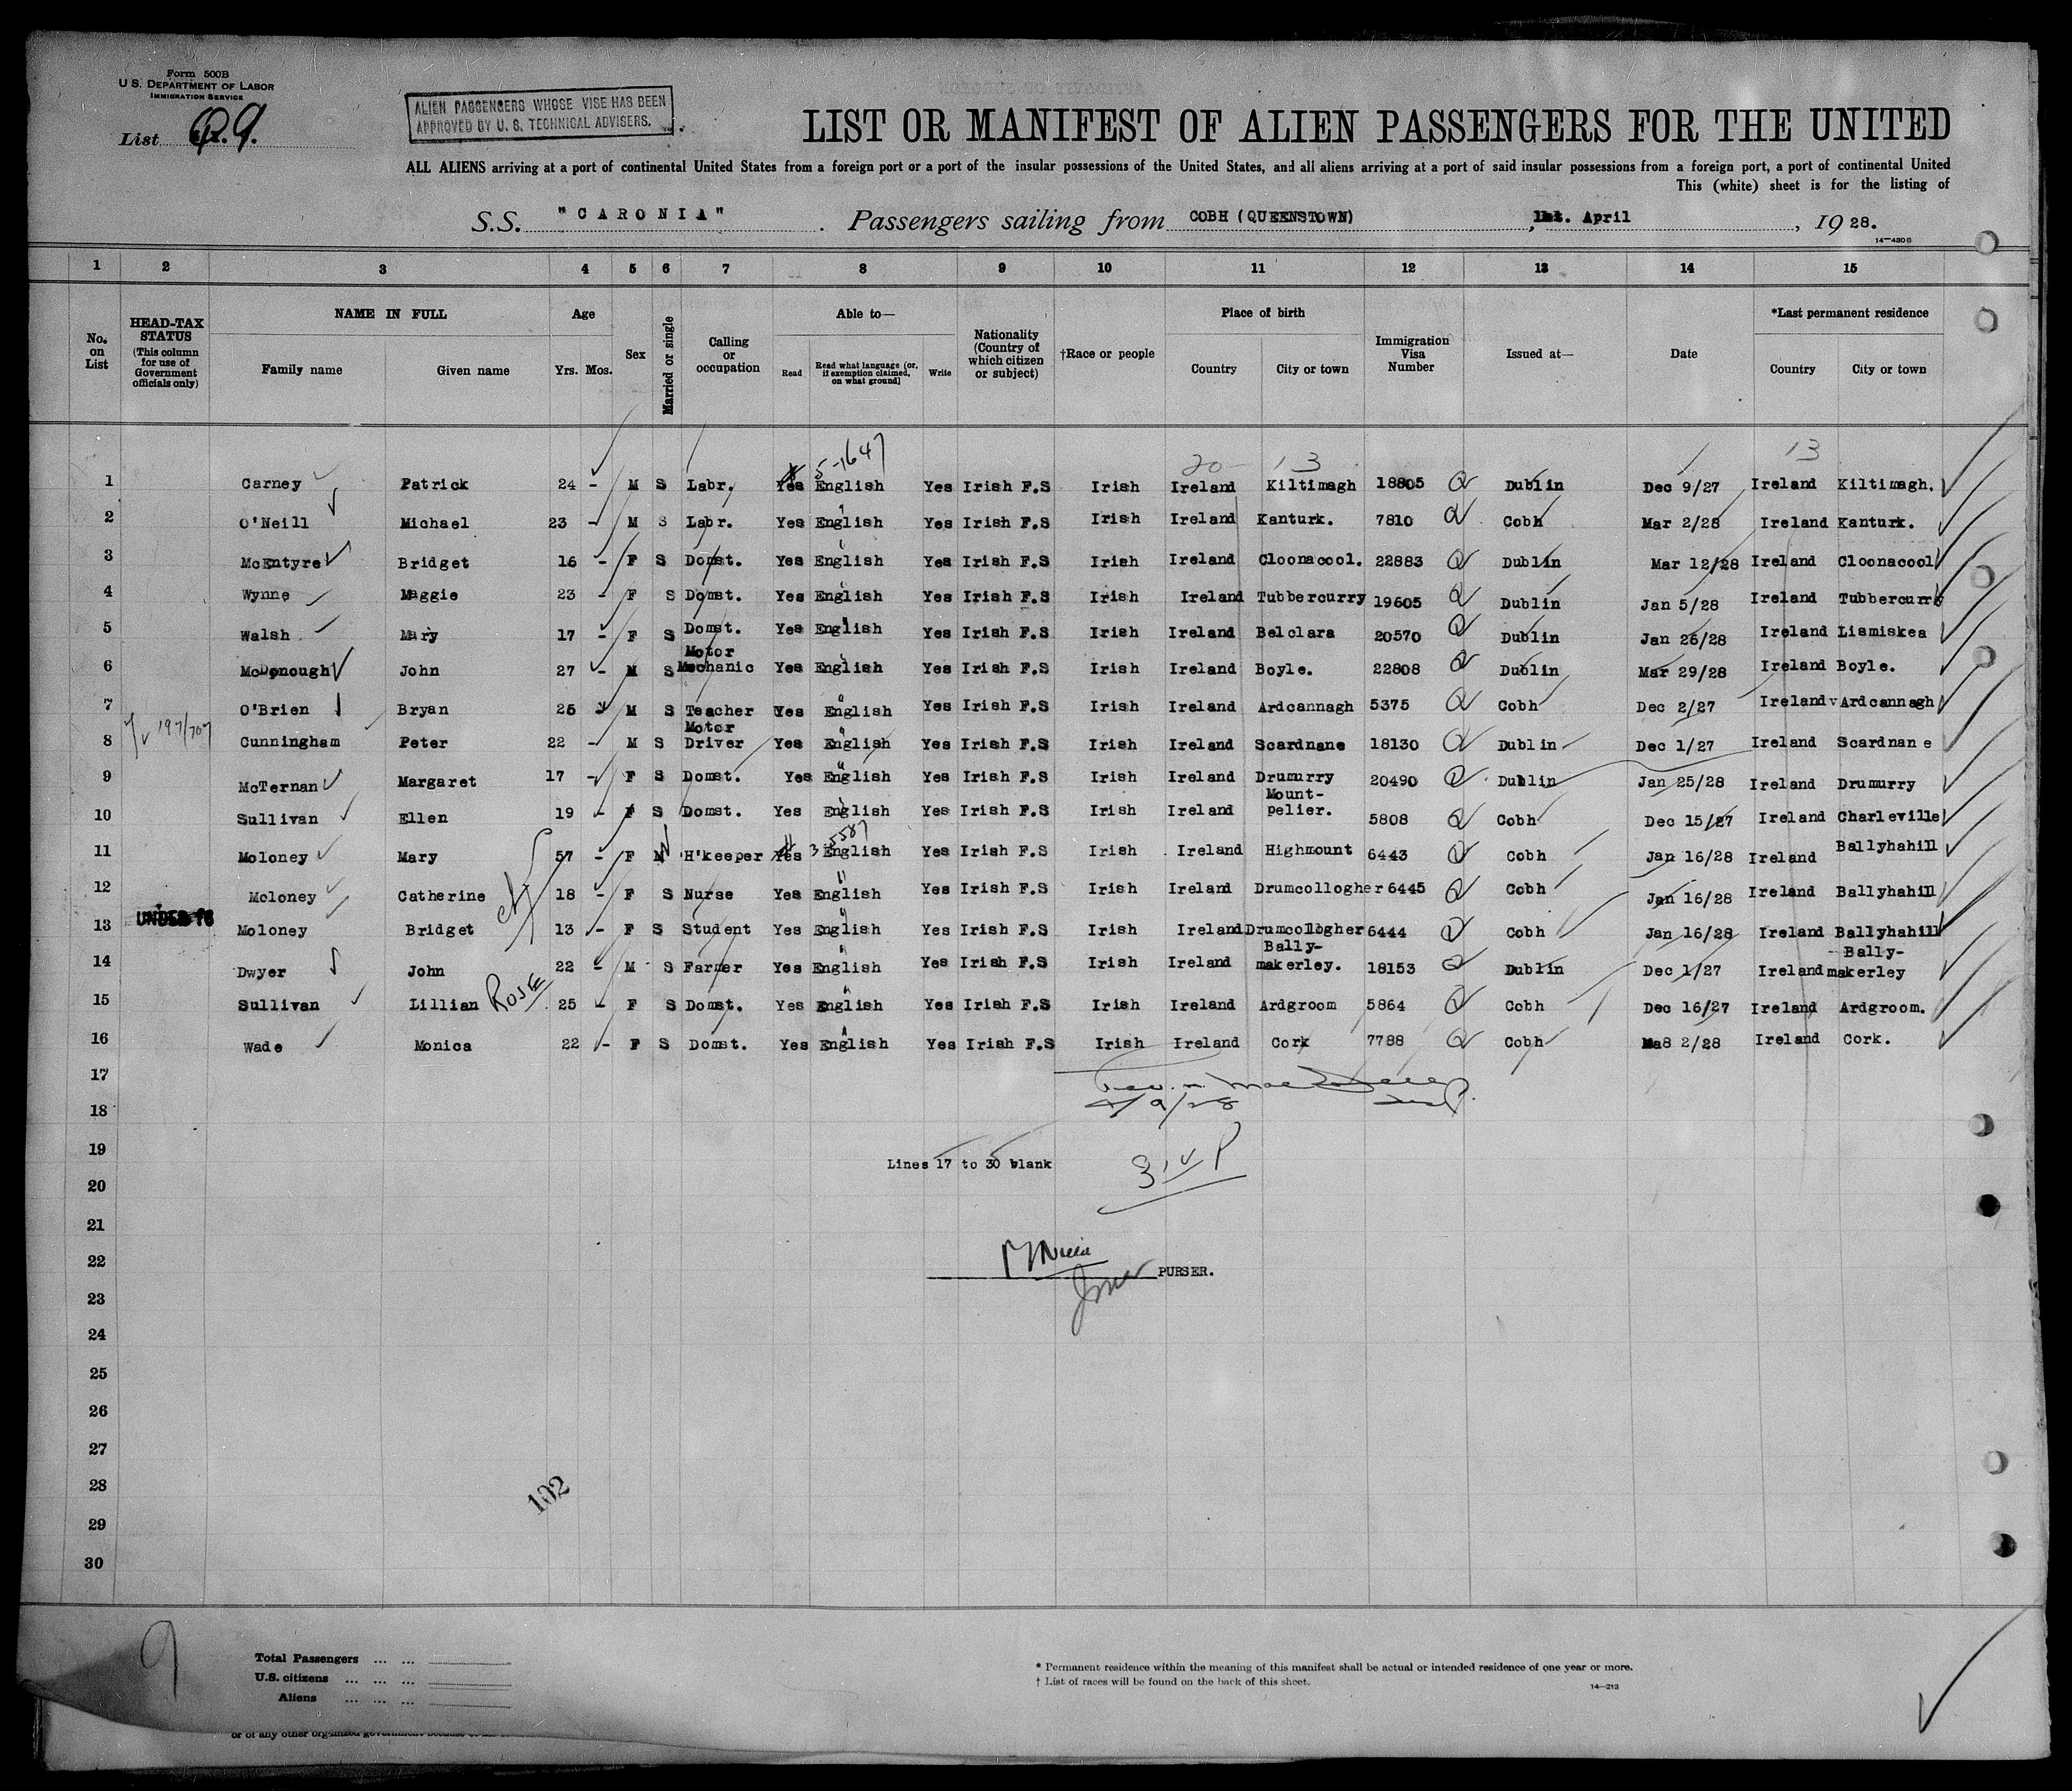 Form 500B
U. S. DEPARTMENT OF LABOR
IMMIGRATION SERVICE
List 9.
ALIEN PASSENGERS WHOSE VISE HAS BEEN
APPROVED BY U. S. TECHNICAL ADVISERS.
LIST OR MANIFEST OF ALIEN PASSENGERS FOR THE UNITED
ALL ALIENS arriving at a port of continental United States from a foreign port or a port of the insular possessions of the United States, and all aliens arriving at a port of said insular possessions from a foreign port, a port of continental United
This (white) sheet is for the listing of
S.S. "CARONIA". Passengers sailing from COBH (QUEENSTOWN), 1st. April, 1928.
14—430B
1 2 3 4 5 6 7 8 9 10 11 12 13 14 15
No. on List
HEAD-TAX STATUS (This column for use of Government officials only)
NAME IN FULL Family name Given name
Age Yrs. Mos.
Sex
Married or single
Calling or occupation
Able to— Read Read what language (or, if exemption claimed, on what ground) Write
Nationality (Country of which citizen or subject)
†Race or people
Place of birth Country City or town
Immigration Visa Number
Issued at—
Date
*Last permanent residence Country City or town
5-1647 20 13 13
1 Carney Patrick 24 - M S Labr. Yes English Yes Irish F.S Irish Ireland Kiltimagh 18805 Dublin Dec 9/27 Ireland Kiltimagh.
2 O'Neill Michael 23 - M S Labr. Yes English Yes Irish F.S Irish Ireland Kanturk. 7810 Cobh Mar 2/28 Ireland Kanturk.
3 McEntyre Bridget 16 - F S Domst. Yes English Yes Irish F.S Irish Ireland Cloonacool. 22883 Dublin Mar 12/28 Ireland Cloonacool
4 Wynne Maggie 23 - F S Domst. Yes English Yes Irish F.S Irish Ireland Tubbercurry 19605 Dublin Jan 5/28 Ireland Tubbercurry
5 Walsh Mary 17 - F S Domst. Yes English Yes Irish F.S Irish Ireland Belclara 20570 Dublin Jan 26/28 Ireland Lismiskea
6 McDonough John 27 - M S Motor Mechanic Yes English Yes Irish F.S Irish Ireland Boyle. 22808 Dublin Mar 29/28 Ireland Boyle.
7 O'Brien Bryan 26 - M S Teacher Yes English Yes Irish F.S Irish Ireland Ardcannagh 5375 Cobh Dec 2/27 Ireland Ardcannagh
8 Cunningham Peter 22 - M S Motor Driver Yes English Yes Irish F.S Irish Ireland Scardnane 18130 Dublin Dec 1/27 Ireland Scardnane
9 McTernan Margaret 17 - F S Domst. Yes English Yes Irish F.S Irish Ireland Drumurry 20490 Dublin Jan 25/28 Ireland Drumurry
10 Sullivan Ellen 19 - F S Domst. Yes English Yes Irish F.S Irish Ireland Mount-pelier. 5808 Cobh Dec 15/27 Ireland Charleville
11 Moloney Mary 57 - F H'keeper Yes English Yes Irish F.S Irish Ireland Highmount 6443 Cobh Jan 16/28 Ireland Ballyhahill
12 Moloney Catherine 18 - F S Nurse Yes English Yes Irish F.S Irish Ireland Drumcollogher 6445 Cobh Jan 16/28 Ireland Ballyhahill
13 UNDER 16 Moloney Bridget 13 - F S Student Yes English Yes Irish F.S Irish Ireland Drumcollogher 6444 Cobh Jan 16/28 Ireland Ballyhahill
14 Dwyer John 22 - M S Farmer Yes English Yes Irish F.S Irish Ireland Bally-makerley. 18153 Dublin Dec 1/27 Ireland Bally-makerley
15 Sullivan Lillian ROSE 25 - F S Domst. Yes English Yes Irish F.S Irish Ireland Ardgroom 5864 Cobh Dec 16/27 Ireland Ardgroom.
16 Wade Monica 22 - F S Domst. Yes English Yes Irish F.S Irish Ireland Cork 7788 Cobh 2/28 Ireland Cork.
17
18 4/9/28
19 Lines 17 to 30 blank
20
21
22 PURSER.
23
24
25
26
27
28 102
29
30
9
Total Passengers ... ...
U.S. citizens ... ... ...
Aliens ... ... ...
* Permanent residence within the meaning of this manifest shall be actual or intended residence of one year or more.
† List of races will be found on the back of this sheet.
14—213
or of any other organized government because of